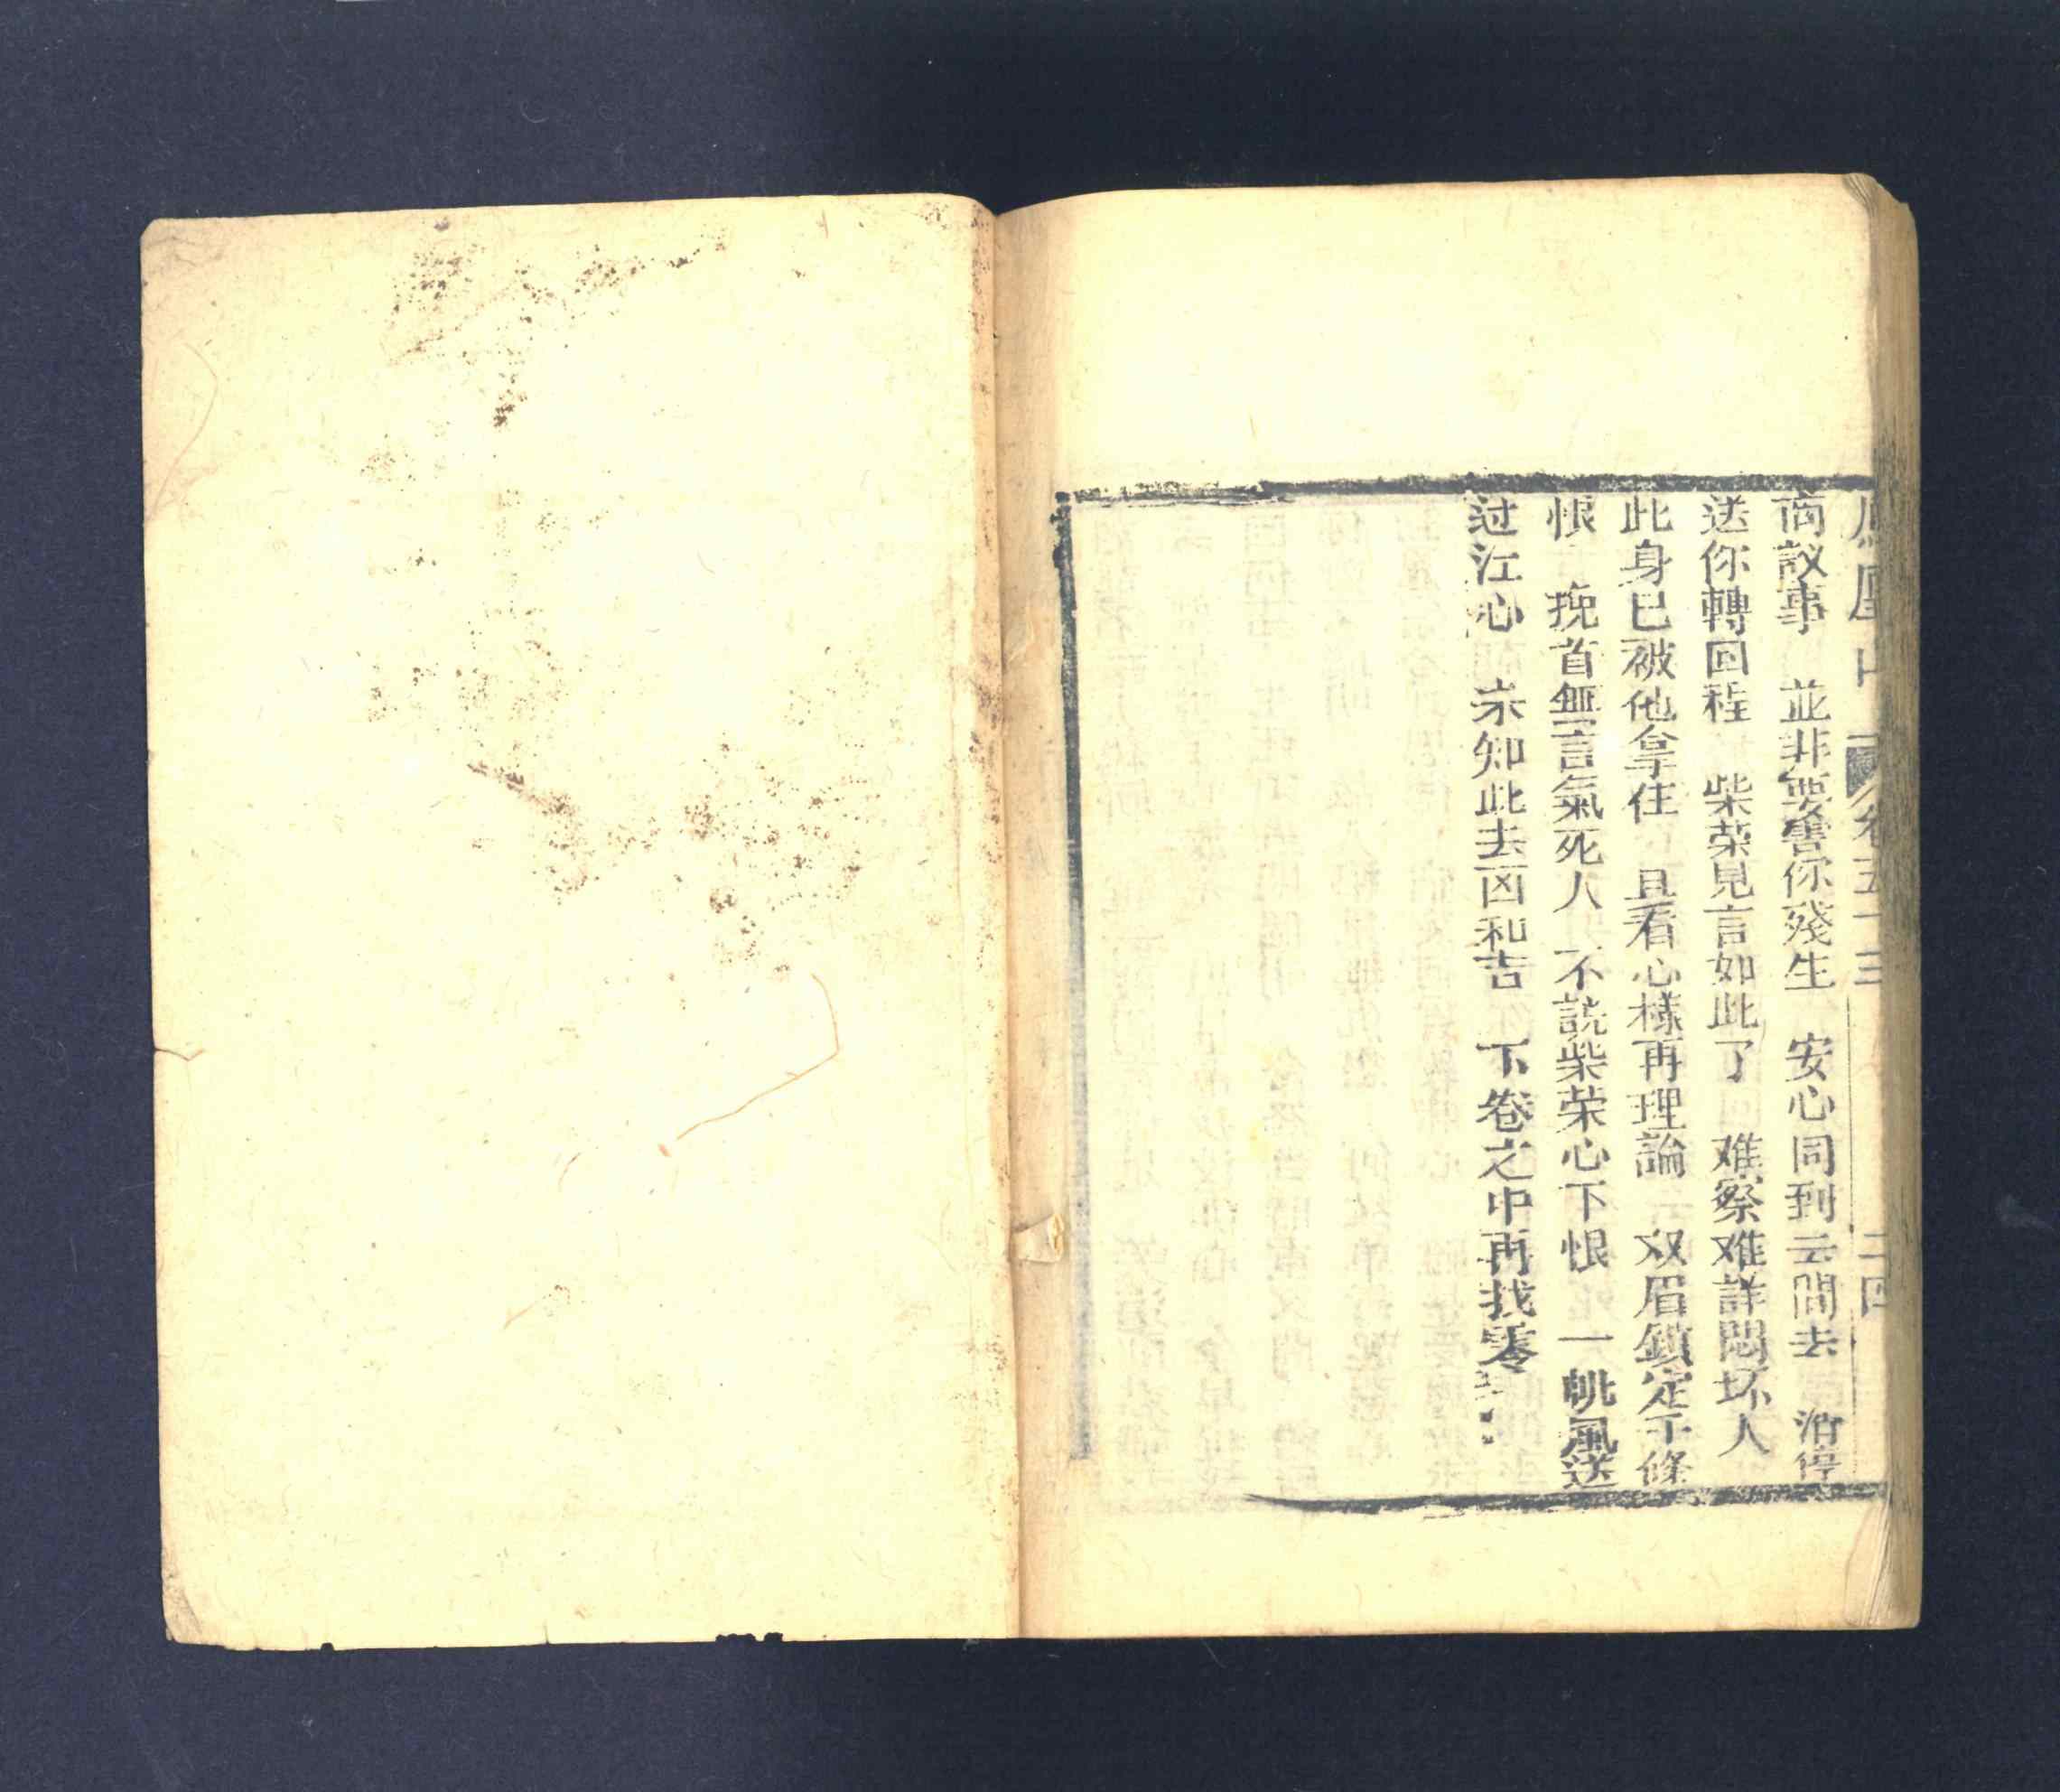 鳳凰山 卷五十三 二四
商議事 並非要害你殘生 安心同到云間去 消停
送你轉回程 柴荣見言如此了 难察难詳悶坏人
此身已被他拿住 且看心樣再理論 双眉鎖定于條
恨 挽首無言氣死人 不説柴荣心下恨 一帆風送
过江心 未知此去凶和吉 下卷之中再找零